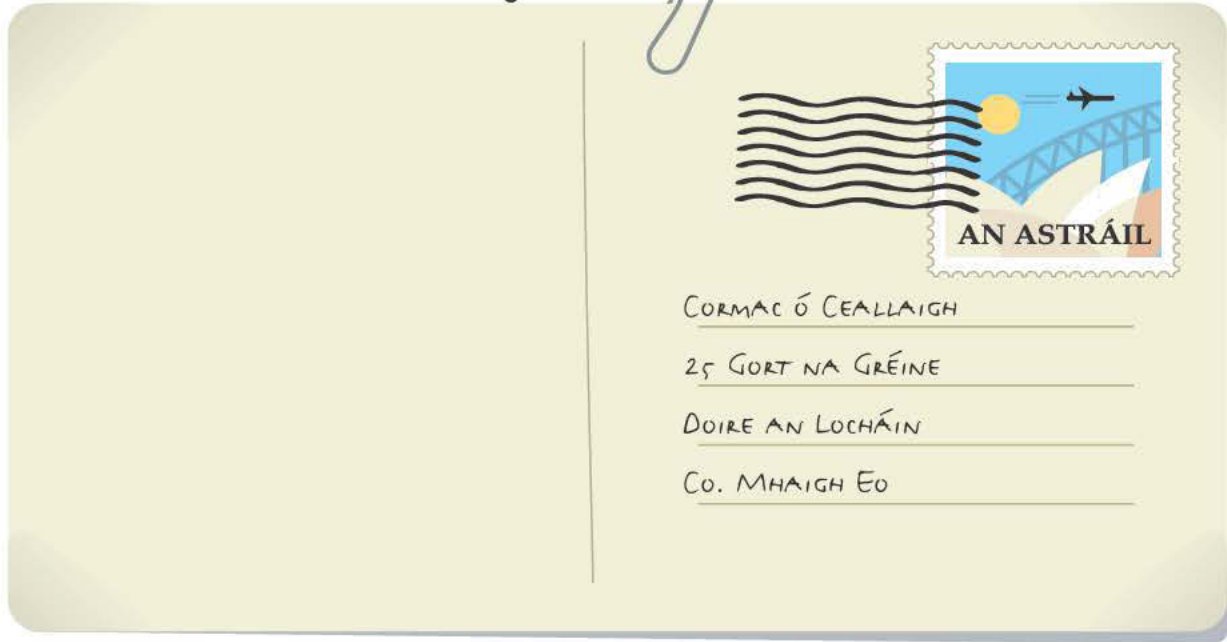 AN ASTRÁIL
CORMAC Ó CEALLAIGH
25 GORT NA GRÉINE
DOIRE AN LOCHÁIN
CO. MHAIGH EO